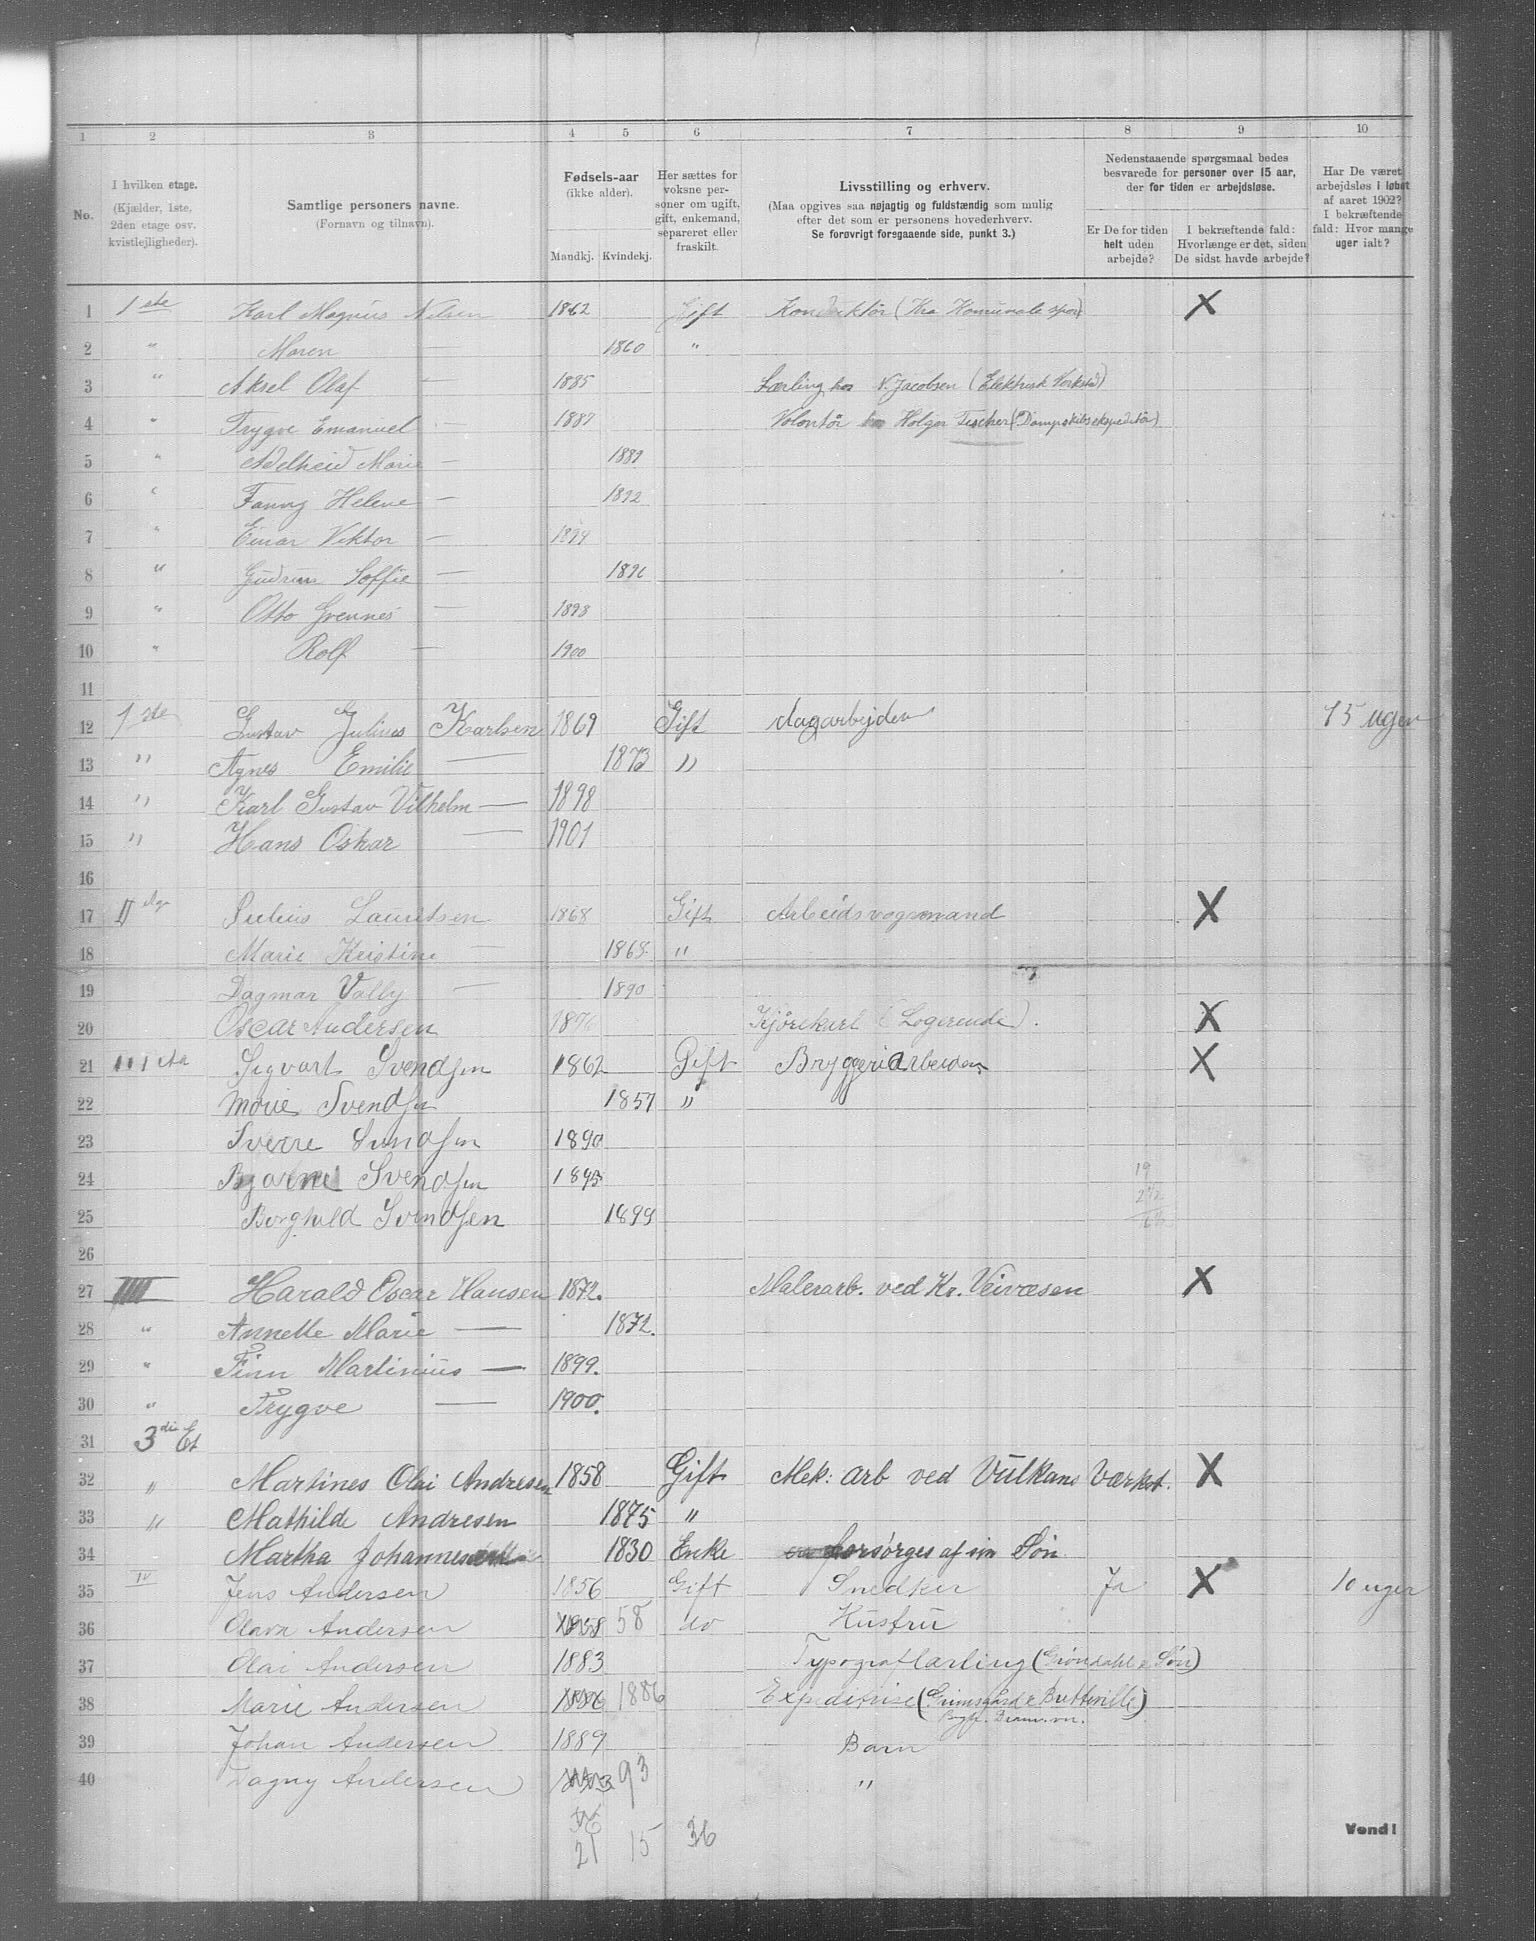 1 2 3 4 5 6 7 8 9 10
No.
I hvilken etage.
(Kjælder, 1ste, 2den etage osv. kvistlejligheder).
Samtlige personers navne.
(Fornavn og tilnavn).
Fødsels-aar
(ikke alder).
Mandkj. Kvindekj.
Her sættes for voksne personer om ugift, gift, enkemand, separeret eller fraskilt.
Livsstilling og erhverv.
(Maa opgives saa nøjagtig og fuldstændig som mulig efter det som er personens hovederhverv.
Se forøvrigt foregaaende side, punkt 3.)
Nedenstaaende spørgsmaal bedes besvarede for personer over 15 aar, der for tiden er arbejdsløse.
Er De for tiden helt uden arbejde?
I bekræftende fald: Hvorlænge er det, siden De sidst havde arbejde?
Har De været arbejdsløs i løbet af aaret 1902? I bekræftende fald: Hvor mange uger ialt?
1 1ste Karl Magnus Nilsen 1862 Gift Konduktør (Kra Komunale spor) X
2 " Maren — 1860 "
3 " Aksel Olaf — 1885 Lærling hos N. Jacobsen (Elektrisk Verksted)
4 " Trygve Emanuel — 1887 Volontør hos Holger Fischer (Dampskibsekspeditør)
5 " Adelheid Marie — 1889
6 " Fanny Helene — 1892
7 " Einar Viktor — 1894
8 " Gudrun Soffie — 1896
9 " Otto Grennes — 1898
10 " Rolf — 1900
11
12 1ste Gustav Julius Karlsen 1869 Gift dagarbejder 15 uger
13 " Agnes Emilie — 1873 "
14 " Karl Gustav Vilhelm — 1898
15 " Hans Oskar — 1901
16
17 II Julius Lauritsen 1868 Gift Arbeidsvogsmand X
18 Marie Kristine — 1868 "
19 Dagmar Vally — 1890
20 Oscar Andersen 1876 Kjørekarl (Logerende). X
21 III Sigvart Svendsen 1862 Gift Bryggeriarbeider X
22 Marie Svendsen 1857 "
23 Sverre Svendsen 1890
24 Bjarne Svendsen 1893 19
25 Borghild Svendsen 1899
26
27 IIII Harald Oscar Hansen 1872. Malerarb. ved Kr. Veivæsen X
28 " Annette Marie — 1872.
29 " Finn Martinius — 1899.
30 " Trygve — 1900.
31 3die Et
32 " Martines Olai Andresen 1858 Gift Mek: arb ved Vulkans Værkst. X
33 " Mathilde Andresen 1875 "
34 Martha Johannes 1830 Enke forsørges af sin Søn
35 IV Jens Andersen 1856 Gift Snedker Ja X 10 uger
36 Olava Andersen 58 do Hustru
37 Olai Andersen 1883 Typograflærling (Grøndahl & Søn)
38 Marie Andersen 1886 Expeditrise (Grimsgård & Butteville)
39 Johan Andersen 1889 Barn
40 Dagny Andersen 93 "
36
21 15 36
Vend!